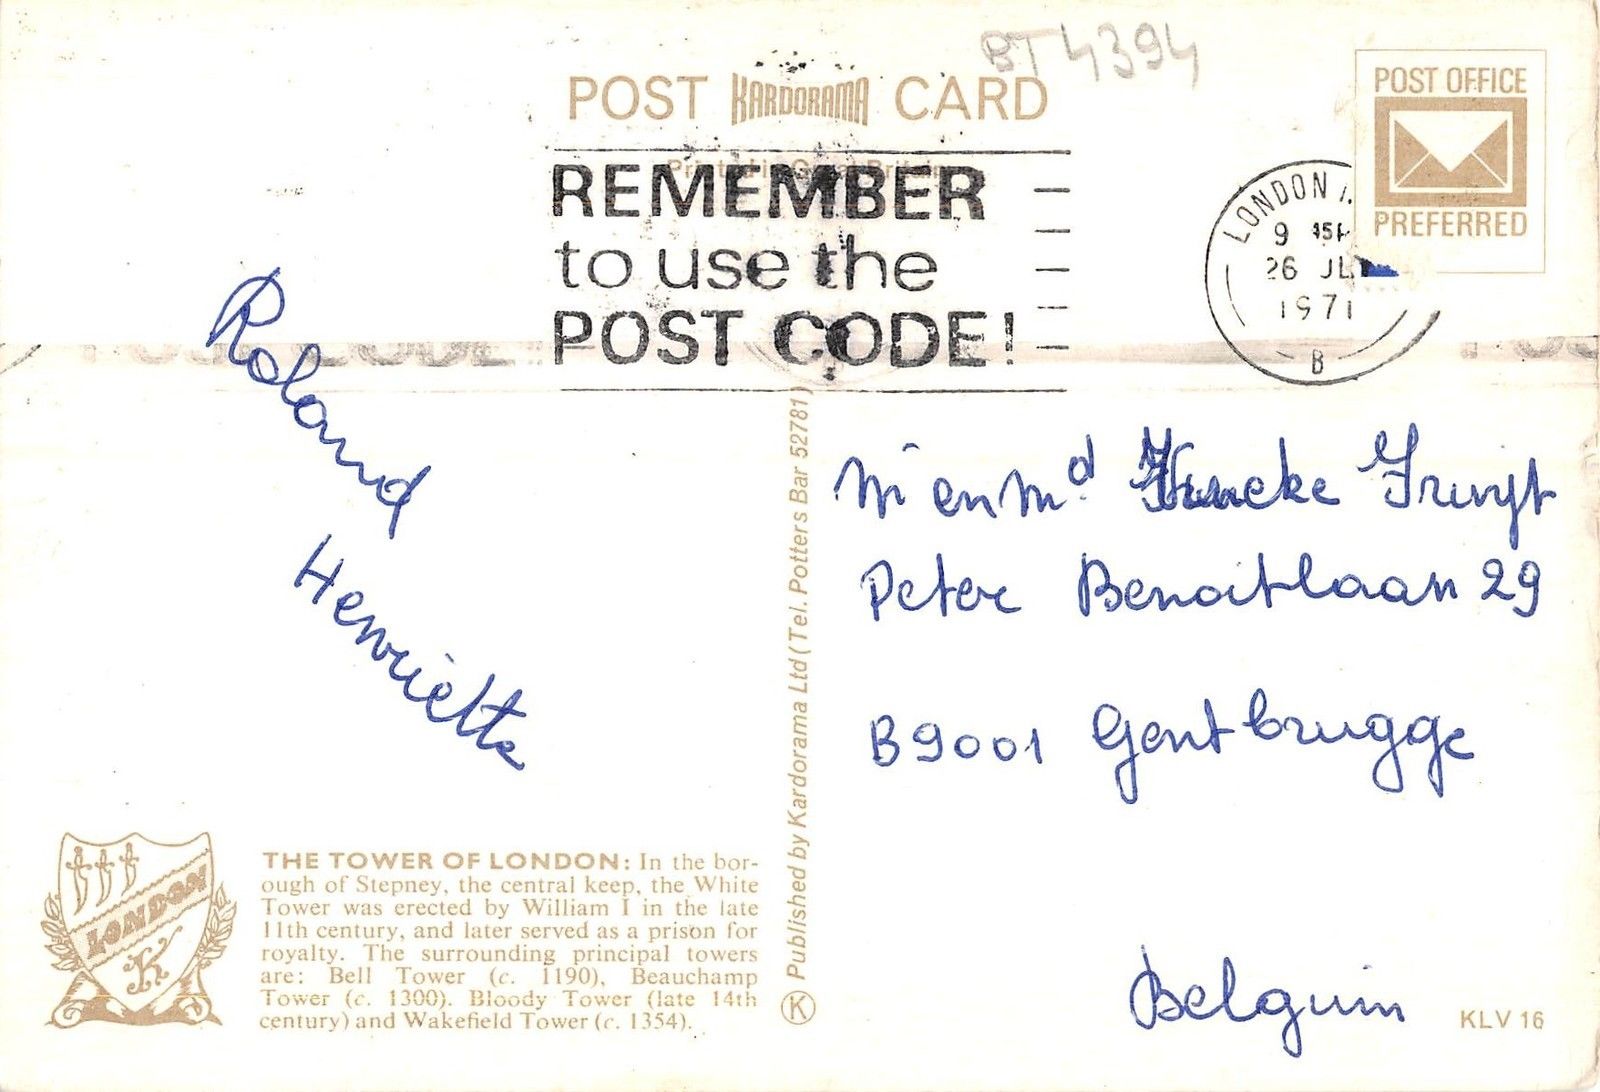 BT 4394
POST KARDORAMA CARD
POST OFFICE
PREFERRED
Printed in Great Britain
REMEMBER
to use the
POST CODE!
LONDON
9 45P
26 JL
1971
B
Roland
Henriette
Mr en Md
Peter Benoitlaan 29
B 9001 Gentbrugge
Belguim
Published by Kardorama Ltd (Tel. Potters Bar 52781)
K
LONDON
K
THE TOWER OF LONDON: In the bor-
ough of Stepney, the central keep, the White
Tower was erected by William I in the late
11th century, and later served as a prison for
royalty. The surrounding principal towers
are: Bell Tower (c. 1190), Beauchamp
Tower (c. 1300). Bloody Tower (late 14th
century) and Wakefield Tower (c. 1354).
KLV 16